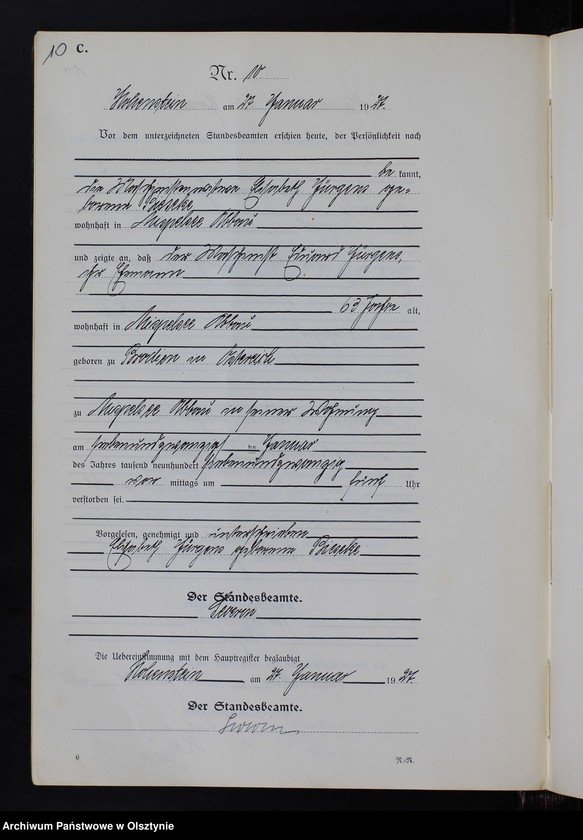 10 C.
Nr. 10
Hohenstein am 27 Januar 1927.
Vor dem unterzeichneten Standesbeamten erschien heute, der Persönlichkeit nach
be kannt,
die Elisabeth Jürgens ge-
borene
wohnhaft in Mispelsee Abbau
und zeigte an, daß der Eduard Jürgens,
ihr Ehemann
63 Jahre alt,
wohnhaft in Mispelsee Abbau
geboren zu in
zu Mispelsee Abbau in seiner Wohnung
am siebenundzwanzig ten Januar
des Jahres tausend neunhundert siebenundzwanzig
vor mittags um fünf Uhr
verstorben sei.
Vorgelesen, genehmigt und unterschrieben
Elisabeth Jürgens geborene
Der Standesbeamte.
Die Uebereinstimmung mit dem Hauptregister beglaubigt
Hohenstein am 27 Januar 1927.
Der Standesbeamte.
6 R.-R.
Archiwum Państwowe w Olsztynie